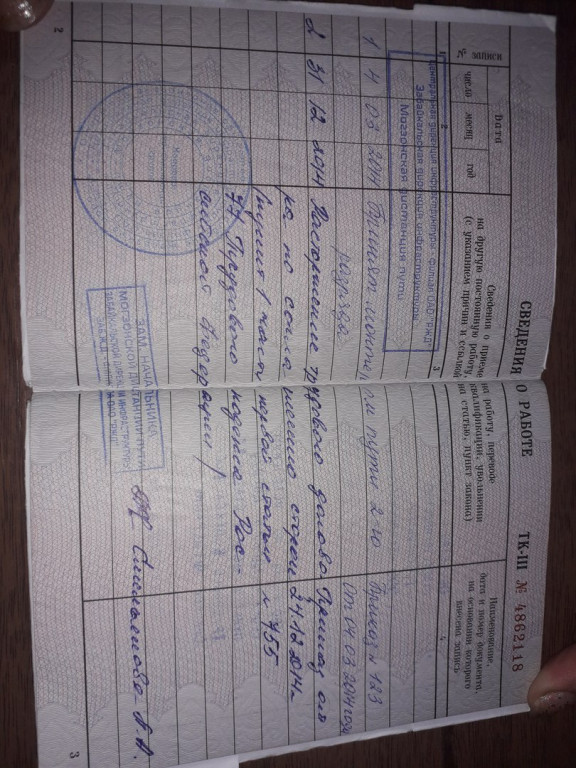 СВЕДЕНИЯ О РАБОТЕ
ТК-III № 4862118
№ записи
Дата
число
месяц
год
Сведения о приеме на работу, переводе
на другую постоянную работу, квалификации, увольнении
(с указанием причин и ссылкой на статью, пункт закона)
Наименование,
дата и номер документа,
на основании которого
внесена запись
2
3
4
Центральная дирекция инфраструктуры филиал ОАО "РЖД"
Забайкальская дирекция инфраструктуры
Могзонская дистанция пути
1 4 03 2014 Принят монтером пути 2 го Приказ н 123
разряда От 04.03.2014 года
2 31 12 2014 Расторжение трудового догово Приказ от
ра по согла шению сторон 24.12.2014г
(пункт 1 части первой статьи н 455
77 Трудового кодекса Рос-
сийской Федерации)
ЗАМ. НАЧАЛЬНИКА
МОГЗОНСКОЙ ДИСТАНЦИИ ПУТИ
2
3